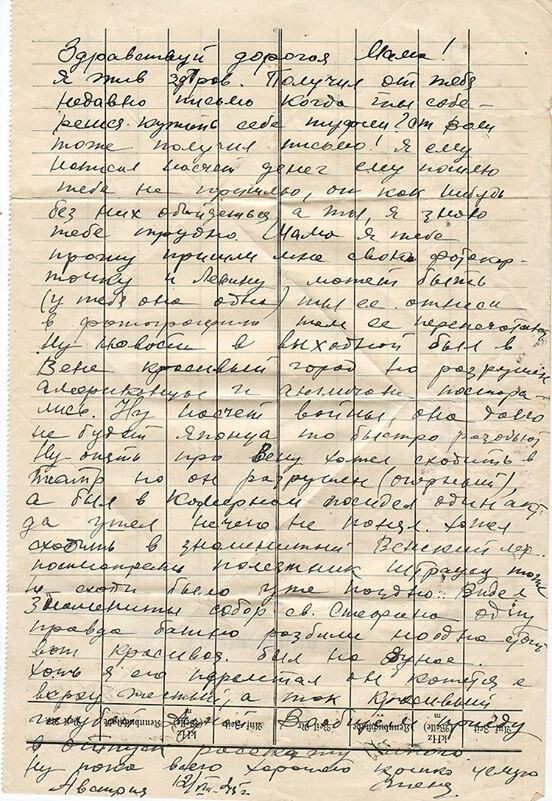 Здравствуй дорогая Мама!
Я жив здоров. Получил от тебя
недавно письмо когда ты собе-
решся купить себе туфли? От Вали
тоже получил письмо! Я ему
написал насчет денег ему пошлю
тебе не пришлю, он как нибудь
без них обойдеться, а ты, я знаю
тебе трудно. Мама я тебе
прошу пришли мне свою фотокар-
точку и Левину может быть
(у тебя она одна) ты ее отнеси
в фотографию там ее перепечатают
Ну новости в выходной был в
Вене красивый город но разрушен
американцы и англичане постара-
лись. Ну насчет войны она долго
не будет Японца то быстро разобьют
Ну опять про Вену хотел сходить в
театр но он разрушен (оперный),
а был в Камерном посидел один акт
да ушел нечего не понял. Хотел
сходить в знаменитый Венский лес
посмотреть памятник Штраусу тоже
но сходи было уже поздно. Видел
знаменитый собор св. Стефана одну
правда башню разбили но одна
вот красивая. Был на Дунае..
хоть я его перелетал он кажется с
верху а так красивый
голубой
kHz (Seite) m
Uhr Zeit Bis
kHz (Seite) m
Uhr Zeit Bis
kHz (Seite) m
в отпуск расскажу много
Ну пока всего хорошего крепко целую
Австрия 12/ 45 г. Женя